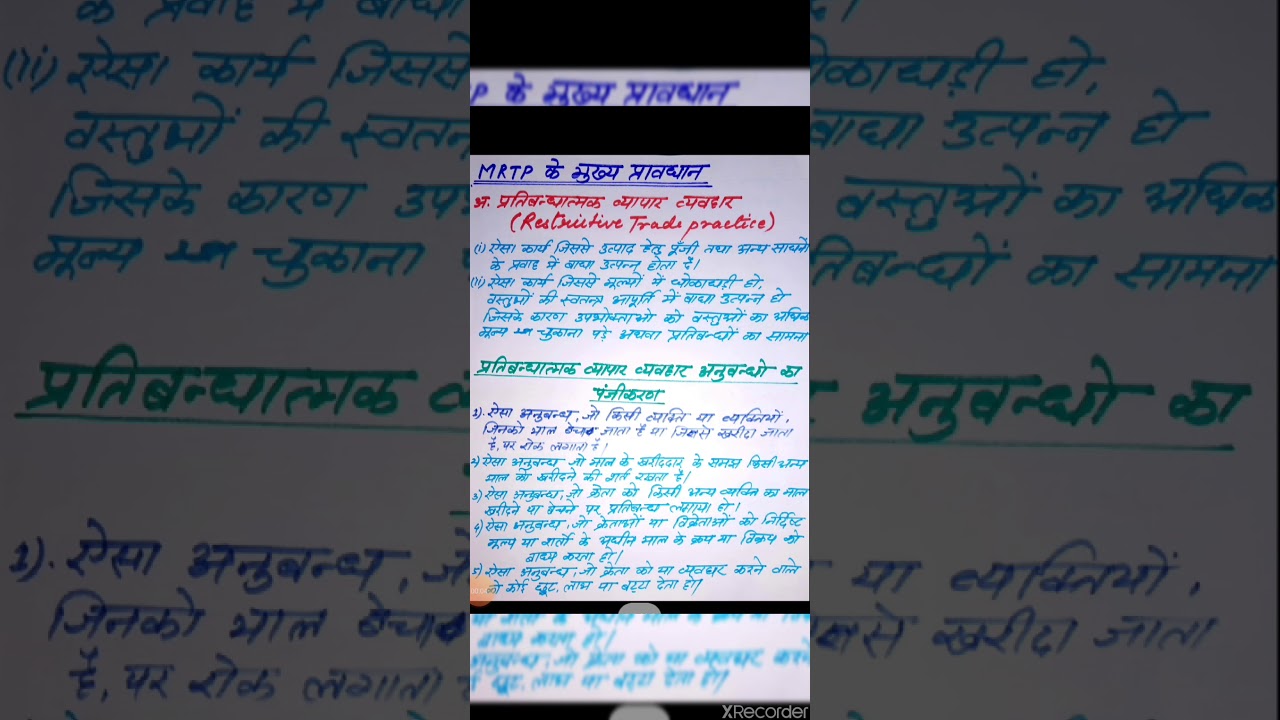 P के मुख्य प्रावधान
MRTP के मुख्य प्रावधान
अ. प्रतिबन्धात्मक व्यापार व्यवहार
(Restrictive Trade practice)
(i) ऐसा कार्य जिससे उत्पाद हेतु पूँजी तथा अन्य साधनों
के प्रवाह में बाधा उत्पन्न होता है।
(ii) ऐसा कार्य जिससे मूल्यों में धोकाधड़ी हो,
वस्तुओं की स्वतन्त्र आपूर्ति में बाधा उत्पन्न हो
जिसके कारण उपभोक्ताओ को वस्तुओं का अधिक
मूल्य चुकाना पड़े अथवा प्रतिबन्धों का सामना
प्रतिबन्धात्मक व्यापार व्यवहार अनुबन्धो का
पंजीकरण
1). ऐसा अनुबन्ध, जो किसी व्यक्ति या व्यक्तियों,
जिनको माल बेचा जाता है या जिससे खरीदा जाता
है, पर रोक लगाता है।
2) ऐसा अनुबन्ध जो माल के खरीददार के समक्ष किसी अन्य
माल को खरीदने की शर्त रखता है।
3) ऐसा अनुबन्ध, जो क्रेता को किसी अन्य व्यक्ति का माल
खरीदने या बेचने पर प्रतिबन्ध लगाया हो।
4) ऐसा अनुबन्ध, जो क्रेताओं या विक्रेताओं को निर्दिष्ट
मूल्य या शर्तो के अधीन माल के क्रय या विक्रय को
बाध्य करता हो।
5) ऐसा अनुबन्ध, जो क्रेता को या व्यवहार करने वाले
को कोई छूट, लाभ या बट्टा देता हो।
XRecorder